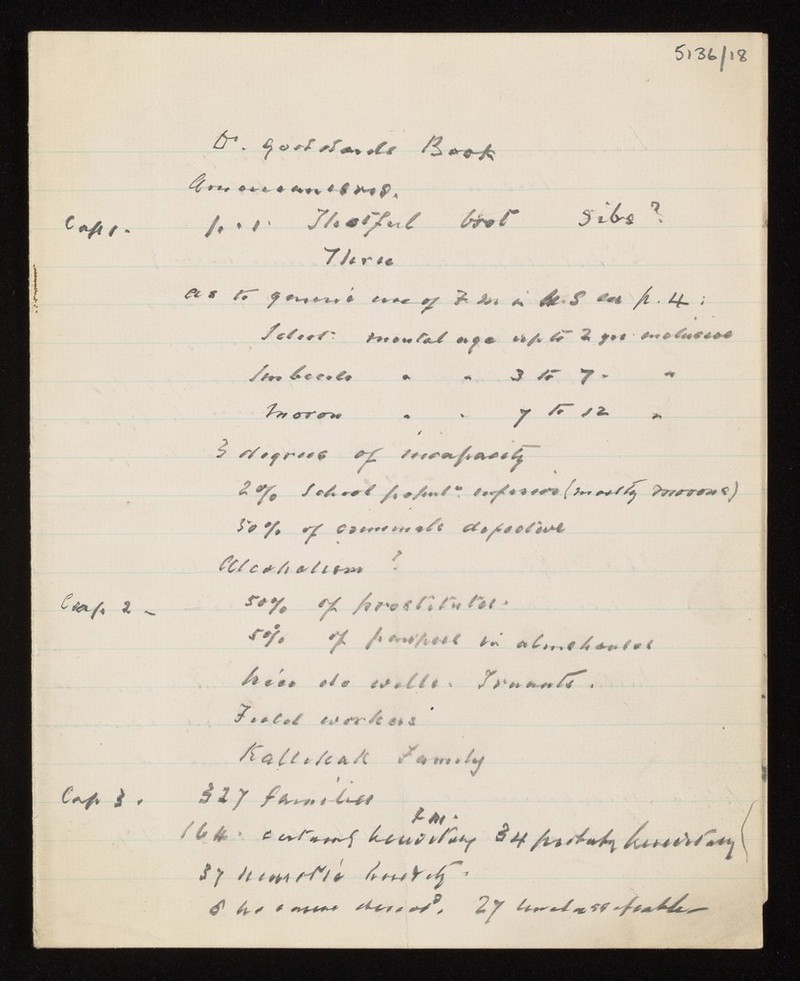 5136/18
Dr. Goddards Book
Americanisms.
Cap 1. p. 1. Thotful bro't Sibs?
Thru
as to generic use of F.M in U.S see p. 4:
Idiot mental age up to 2 yrs inclusive
Imbecile " " 3 to 7 - "
Moron " " 7 to 12 "
3 degrees of incapacity
2% School popultn inferior (mostly morons)
50% of criminals defective
Alcoholism?
Cap 2 - 50% of prostitutes.
50% of paupers in almshouses
Ne'er do wells. Truants.
Field workers
Kallikak Family
Cap 3. 327 families
F.M.
164. certainly hereditary 34 probably hereditary
37 neurotic heredity.
8 no cause discovd. 27 unclassifiable